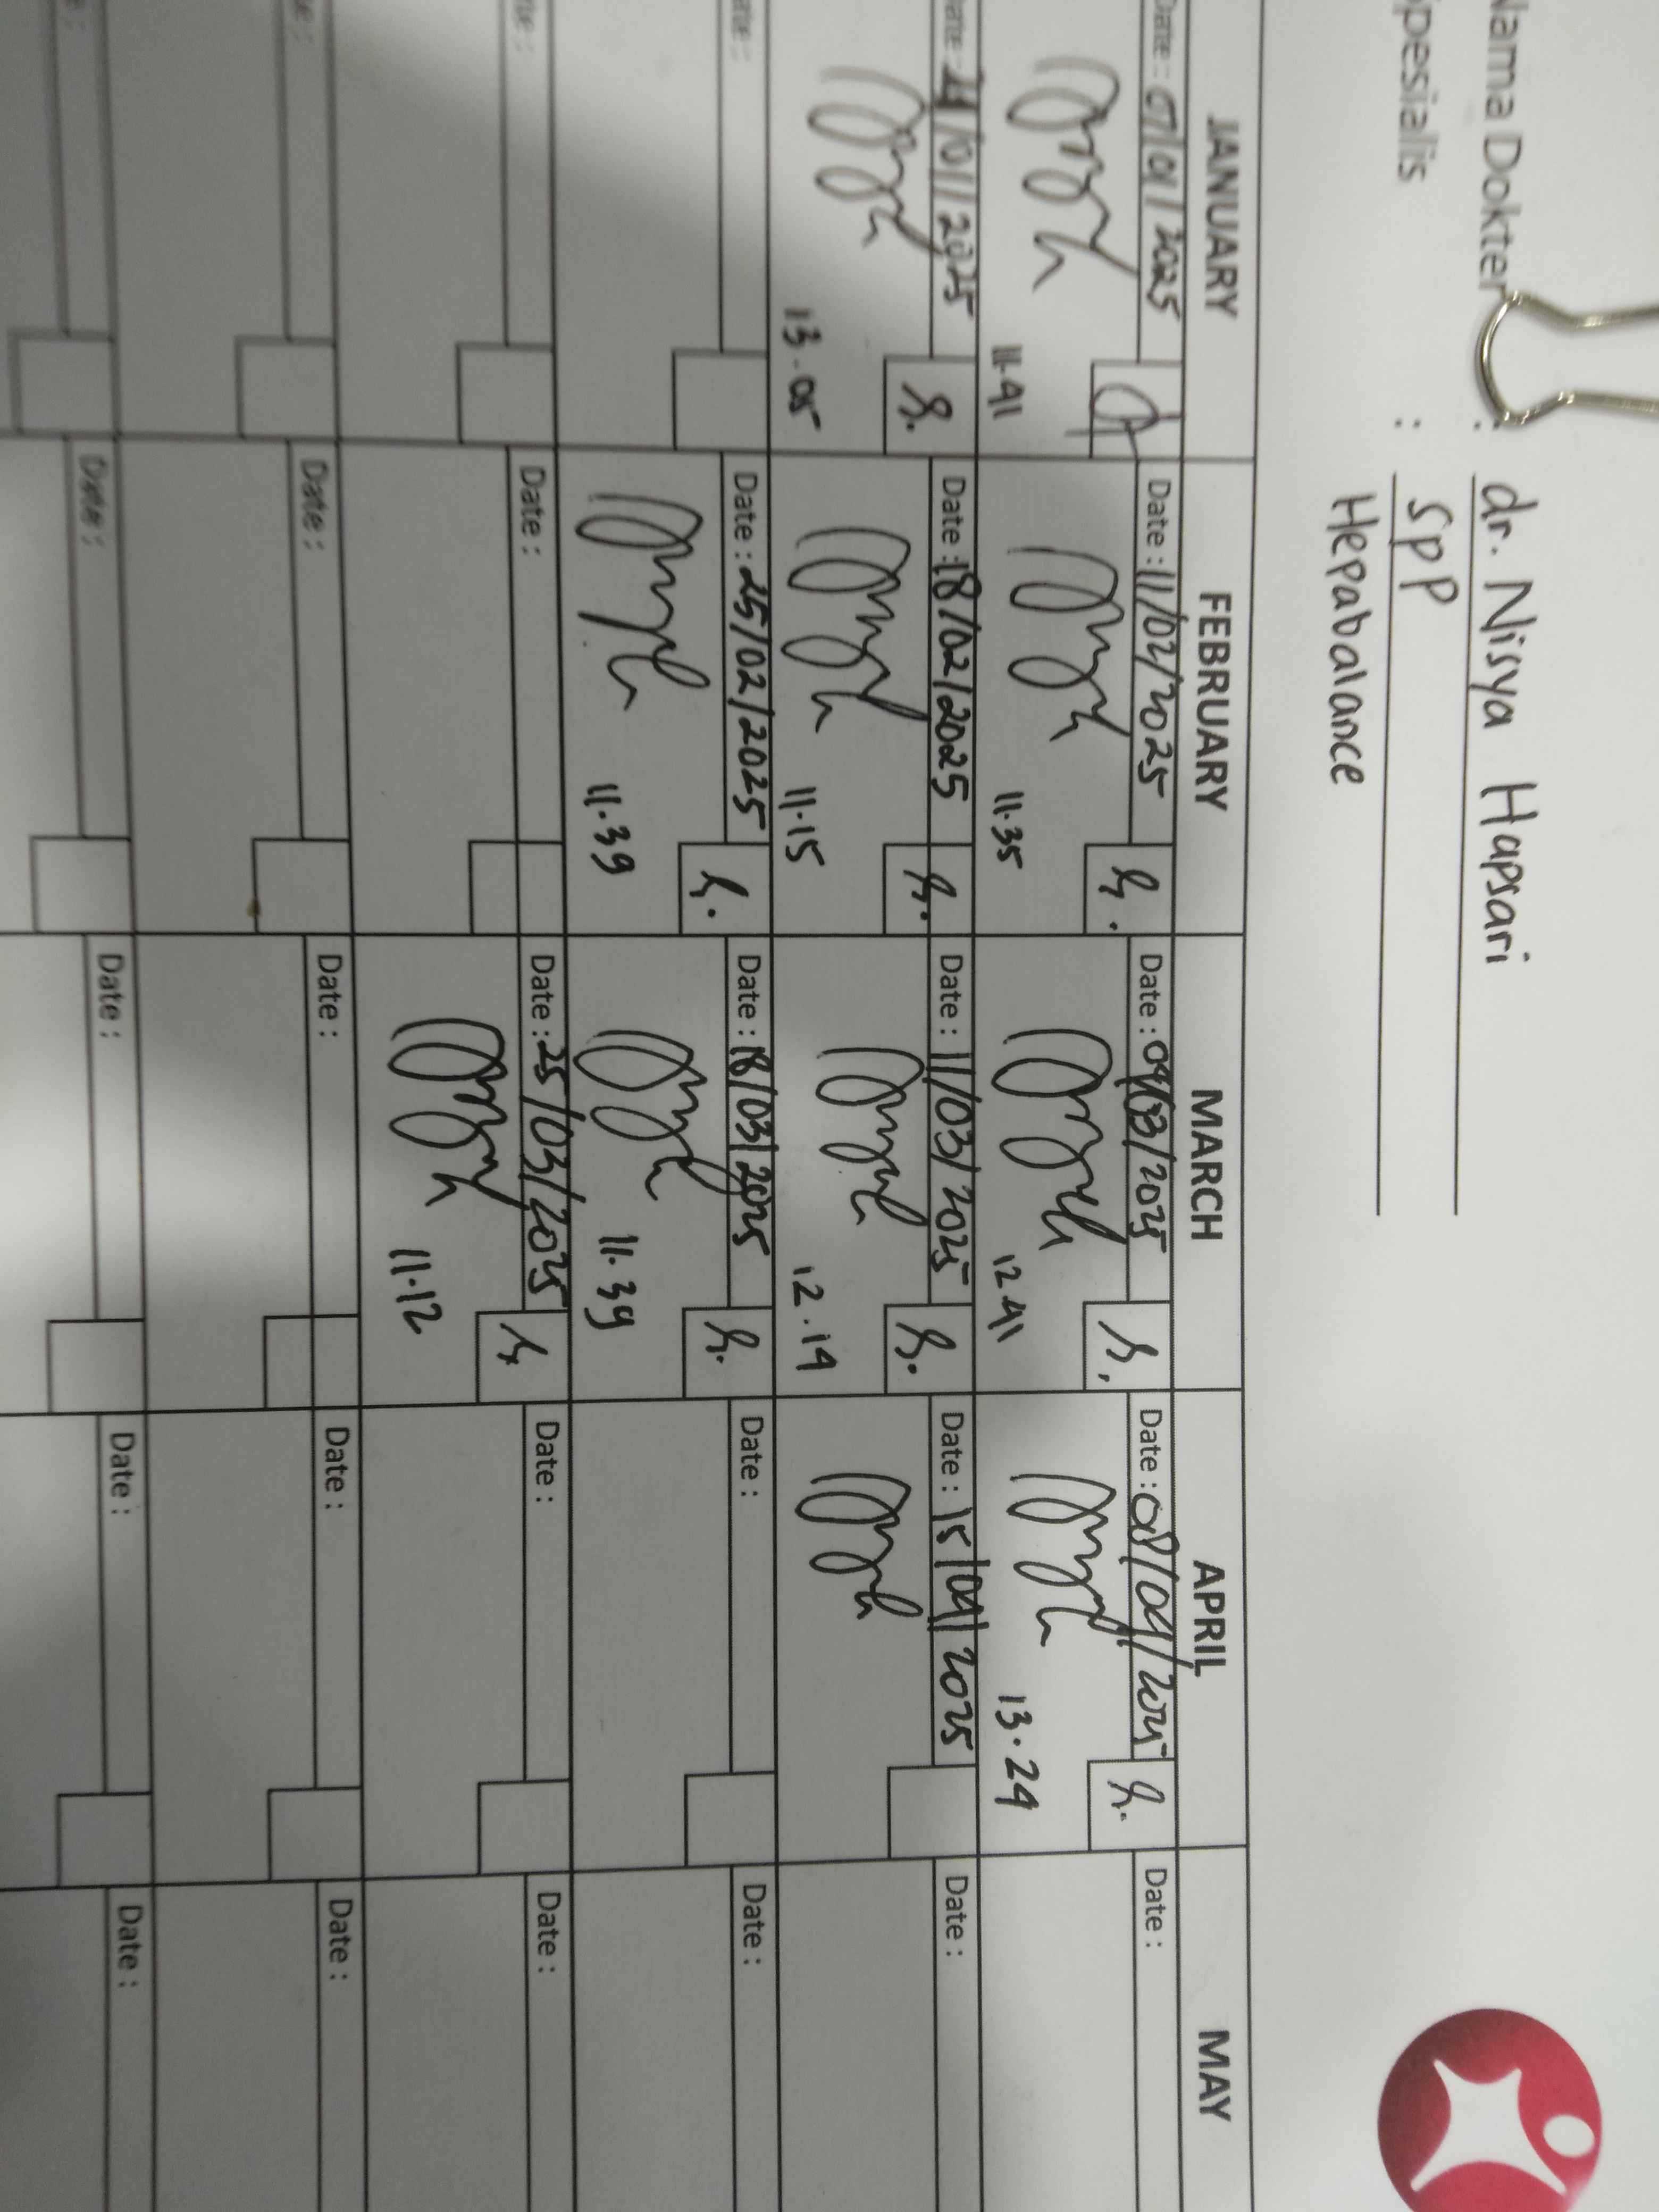 Nama Dokter : dr. Nisya Hapsari
Spesialis : SpP
Hepabalance
JANUARY FEBRUARY MARCH APRIL MAY
Date : 07/01/2025 Date : 11/02/2025 Date : 04/03/2025 Date : 08/04/2025 Date :
11.41 11.35 12.41 13.24
Date : /01/2025 Date : 18/02/2025 Date : 11/03/2025 Date : 15/04/2025 Date :
13.05 11.15 12.14
Date : Date : 25/02/2025 Date : 18/03/2025 Date : Date :
11.39 11.39
Date : Date : 25/03/2025 Date : Date :
11.12
Date : Date : Date : Date :
Date : Date : Date : Date :